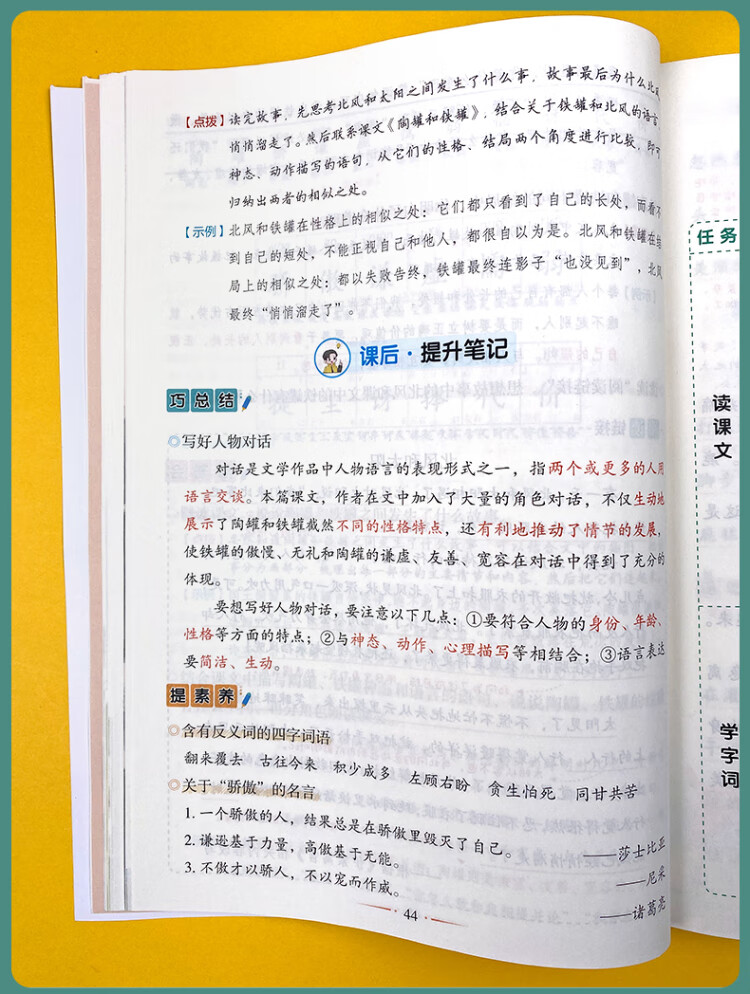 【点拨】读完故事，先思考北风和太阳之间发生了什么事，故事最后为什么北风
悄悄溜走了。然后联系课文《陶罐和铁罐》，结合关于铁罐和北风的语言、
神态、动作描写的语句，从它们的性格、结局两个角度进行比较，即可
归纳出两者的相似之处。
【示例】北风和铁罐在性格上的相似之处：它们都只看到了自己的长处，而看不
到自己的短处，不能正视自己和他人，都很自以为是。北风和铁罐在结
局上的相似之处：都以失败告终，铁罐最终连影子“也没见到”，北风
最终“悄悄溜走了”。
课后·提升笔记
巧总结
写好人物对话
对话是文学作品中人物语言的表现形式之一，指两个或更多的人用
语言交谈。本篇课文，作者在文中加入了大量的角色对话，不仅生动地
展示了陶罐和铁罐截然不同的性格特点，还有利地推动了情节的发展，
使铁罐的傲慢、无礼和陶罐的谦虚、友善、宽容在对话中得到了充分的
体现。
要想写好人物对话，要注意以下几点：①要符合人物的身份、年龄、
性格等方面的特点；②与神态、动作、心理描写等相结合；③语言表达
要简洁、生动。
提素养
含有反义词的四字词语
翻来覆去 古往今来 积少成多 左顾右盼 贪生怕死 同甘共苦
关于“骄傲”的名言
1. 一个骄傲的人，结果总是在骄傲里毁灭了自己。 ——莎士比亚
2. 谦逊基于力量，高傲基于无能。 ——尼采
3. 不傲才以骄人，不以宠而作威。 ——诸葛亮
44
任务
读课文
学字词